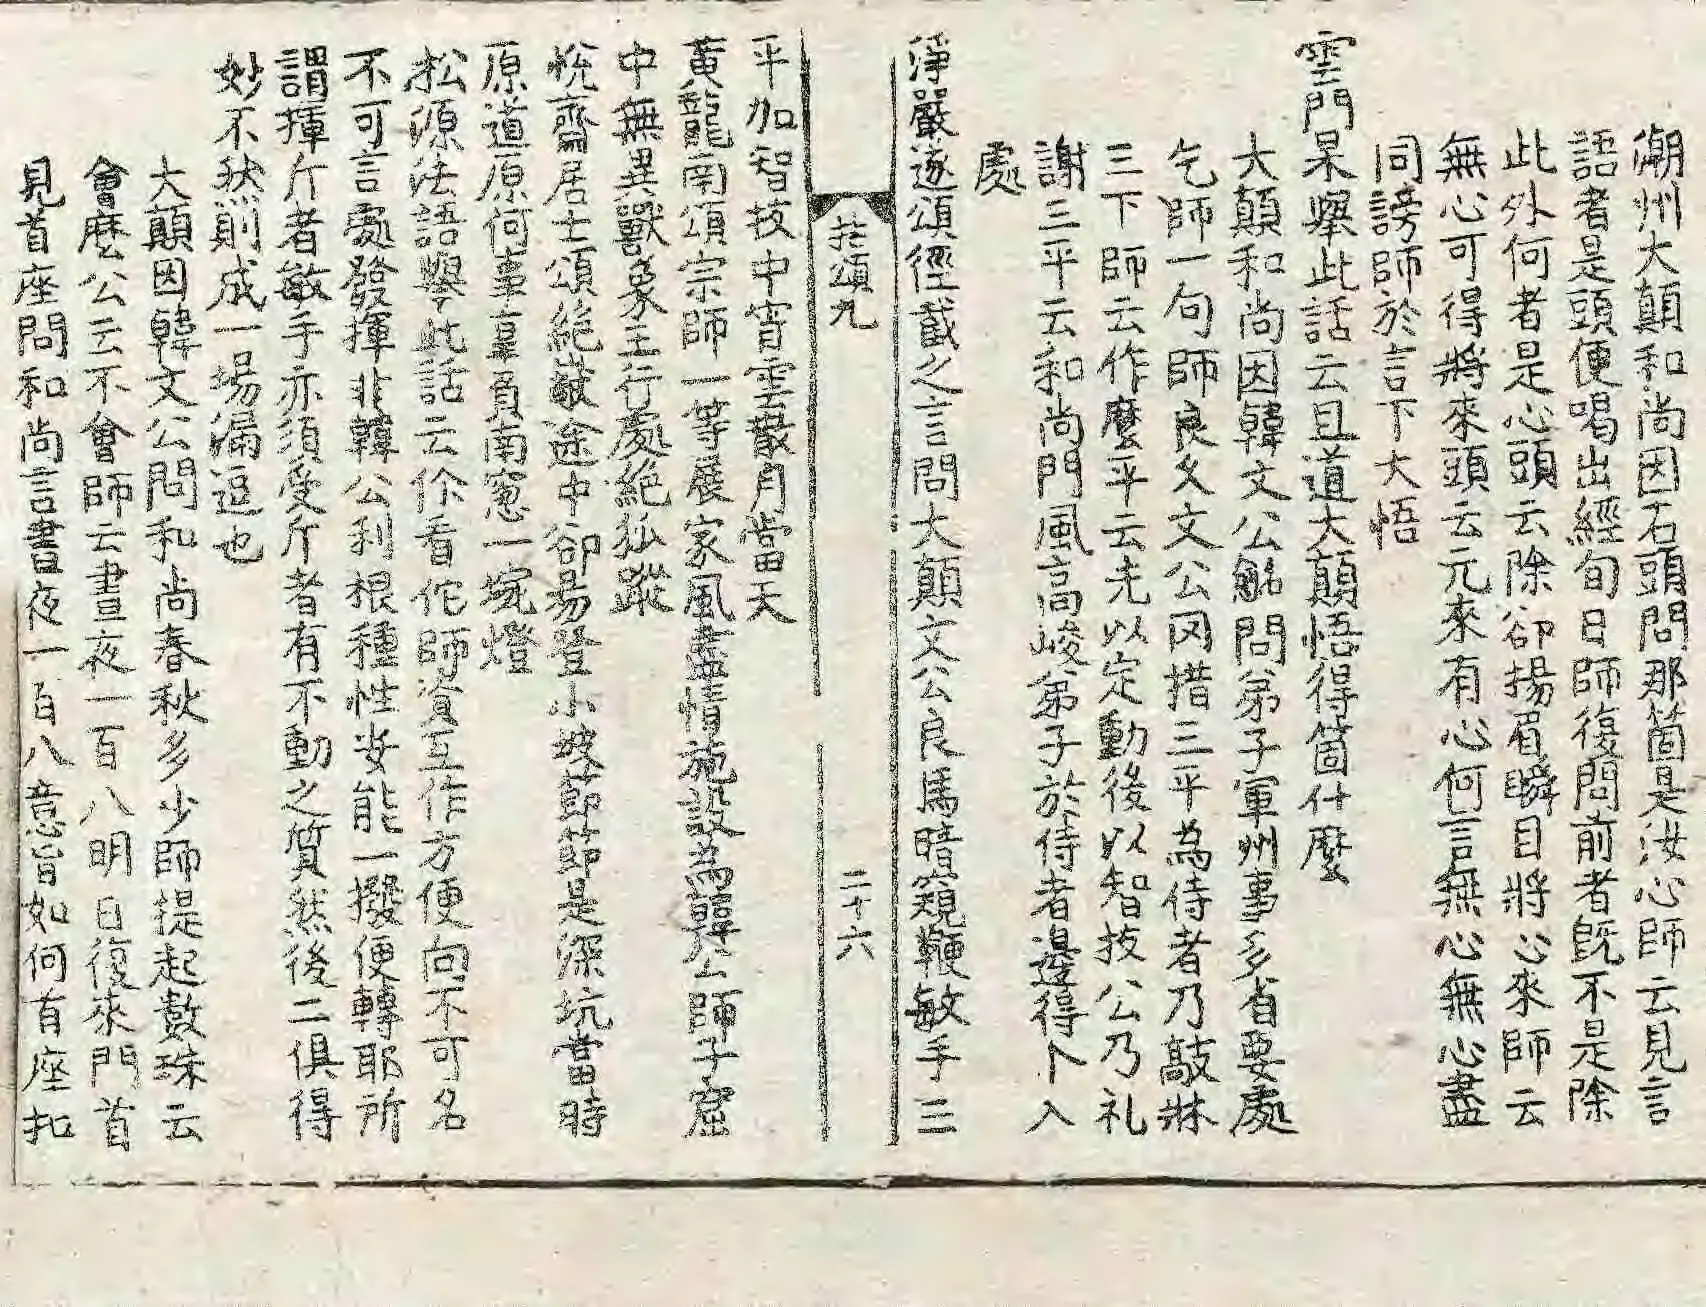 潮州大顛和尚因石頭問那箇是汝心師云見言
語者是頭便喝出經旬日師復問前者旣不是除
此外何者是心頭云除卻揚眉瞬目將心來師云
無心可得將來頭云元來有心何言無心無心盡
同謗師於言下大悟
雲門杲舉此話云且道大顛悟得箇什麼
大顛和尚因韓文公𦥯問弟子軍州事多省要處
乞師一句師良久文公罔措三平為侍者乃敲牀
三下師云作麼平云先以定動後以智拔公乃礼
謝三平云和尚門風高峻弟子於侍者邊得个入
處
淨嚴遂頌徑截之言問大顛文公良馬暗窺鞭敏手三
拈頌九
二十六
平加智拔中宵雲散月當天
黃龍南頌宗師一等展家風盡情施設為韓公師子窟
中無異獸象王行處絶狐蹤
悅齋居士頌絶巘途中卻易登小坡節節是深坑當時
原道原何事辜負南窓一埦燈
松源法語舉此話云你看佗師資互作方便向不可名
不可言處發揮非韓公利根種性安能一撥便轉耶所
謂揮斤者敏手亦須受斤者有不動之質然後二俱得
妙不然則成一場漏逗也
大顛因韓文公問和尚春秋多少師提起數珠云
會麼公云不會師云晝夜一百八明日復來門首
見首座問和尚言晝夜一百八意旨如何首座扣